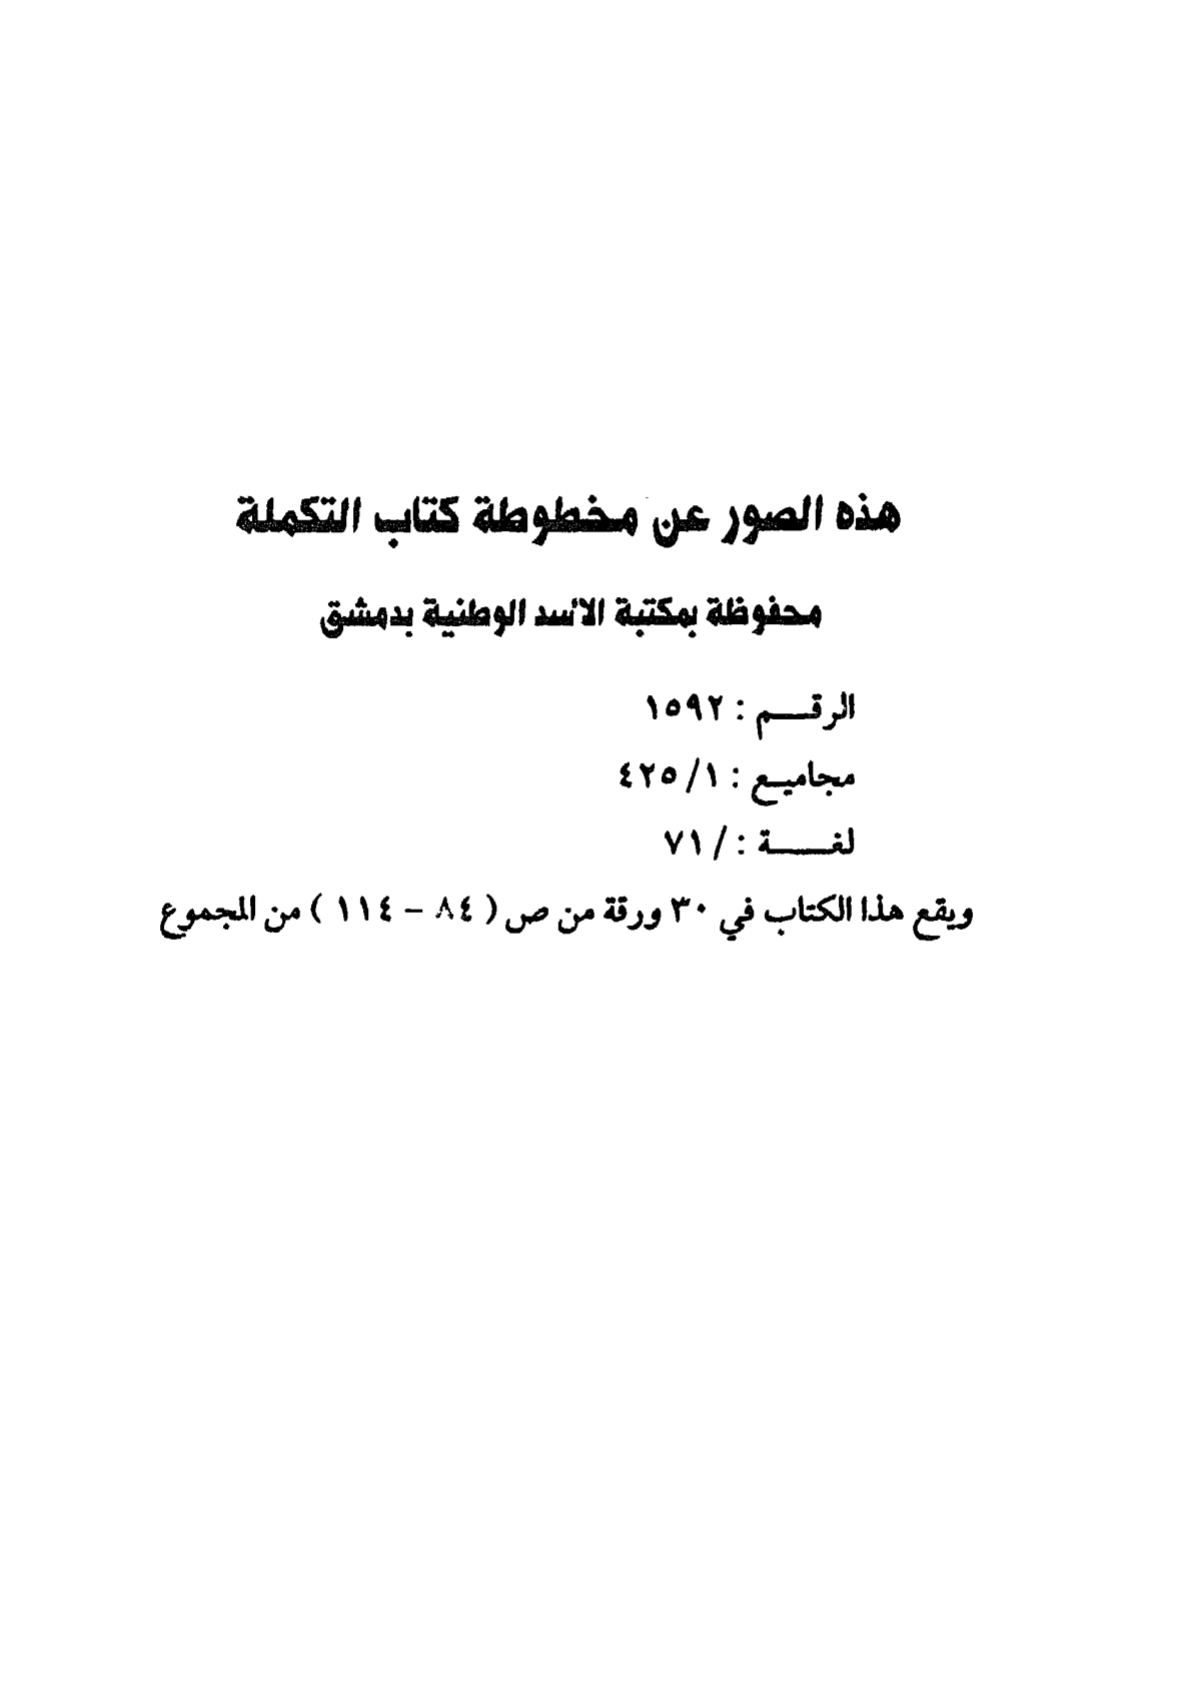 هذه الصور عن مخطوطة كتاب التكملة
محفوظة بمكتبة الأسد الوطنية بدمشق
الرقـــم : ١٥٩٢
مجاميـع : ١/ ٤٢٥
لغـــــة : / ٧١
ويقع هذا الكتاب في ٣٠ ورقة من ص ( ٨٤ - ١١٤ ) من المجموع